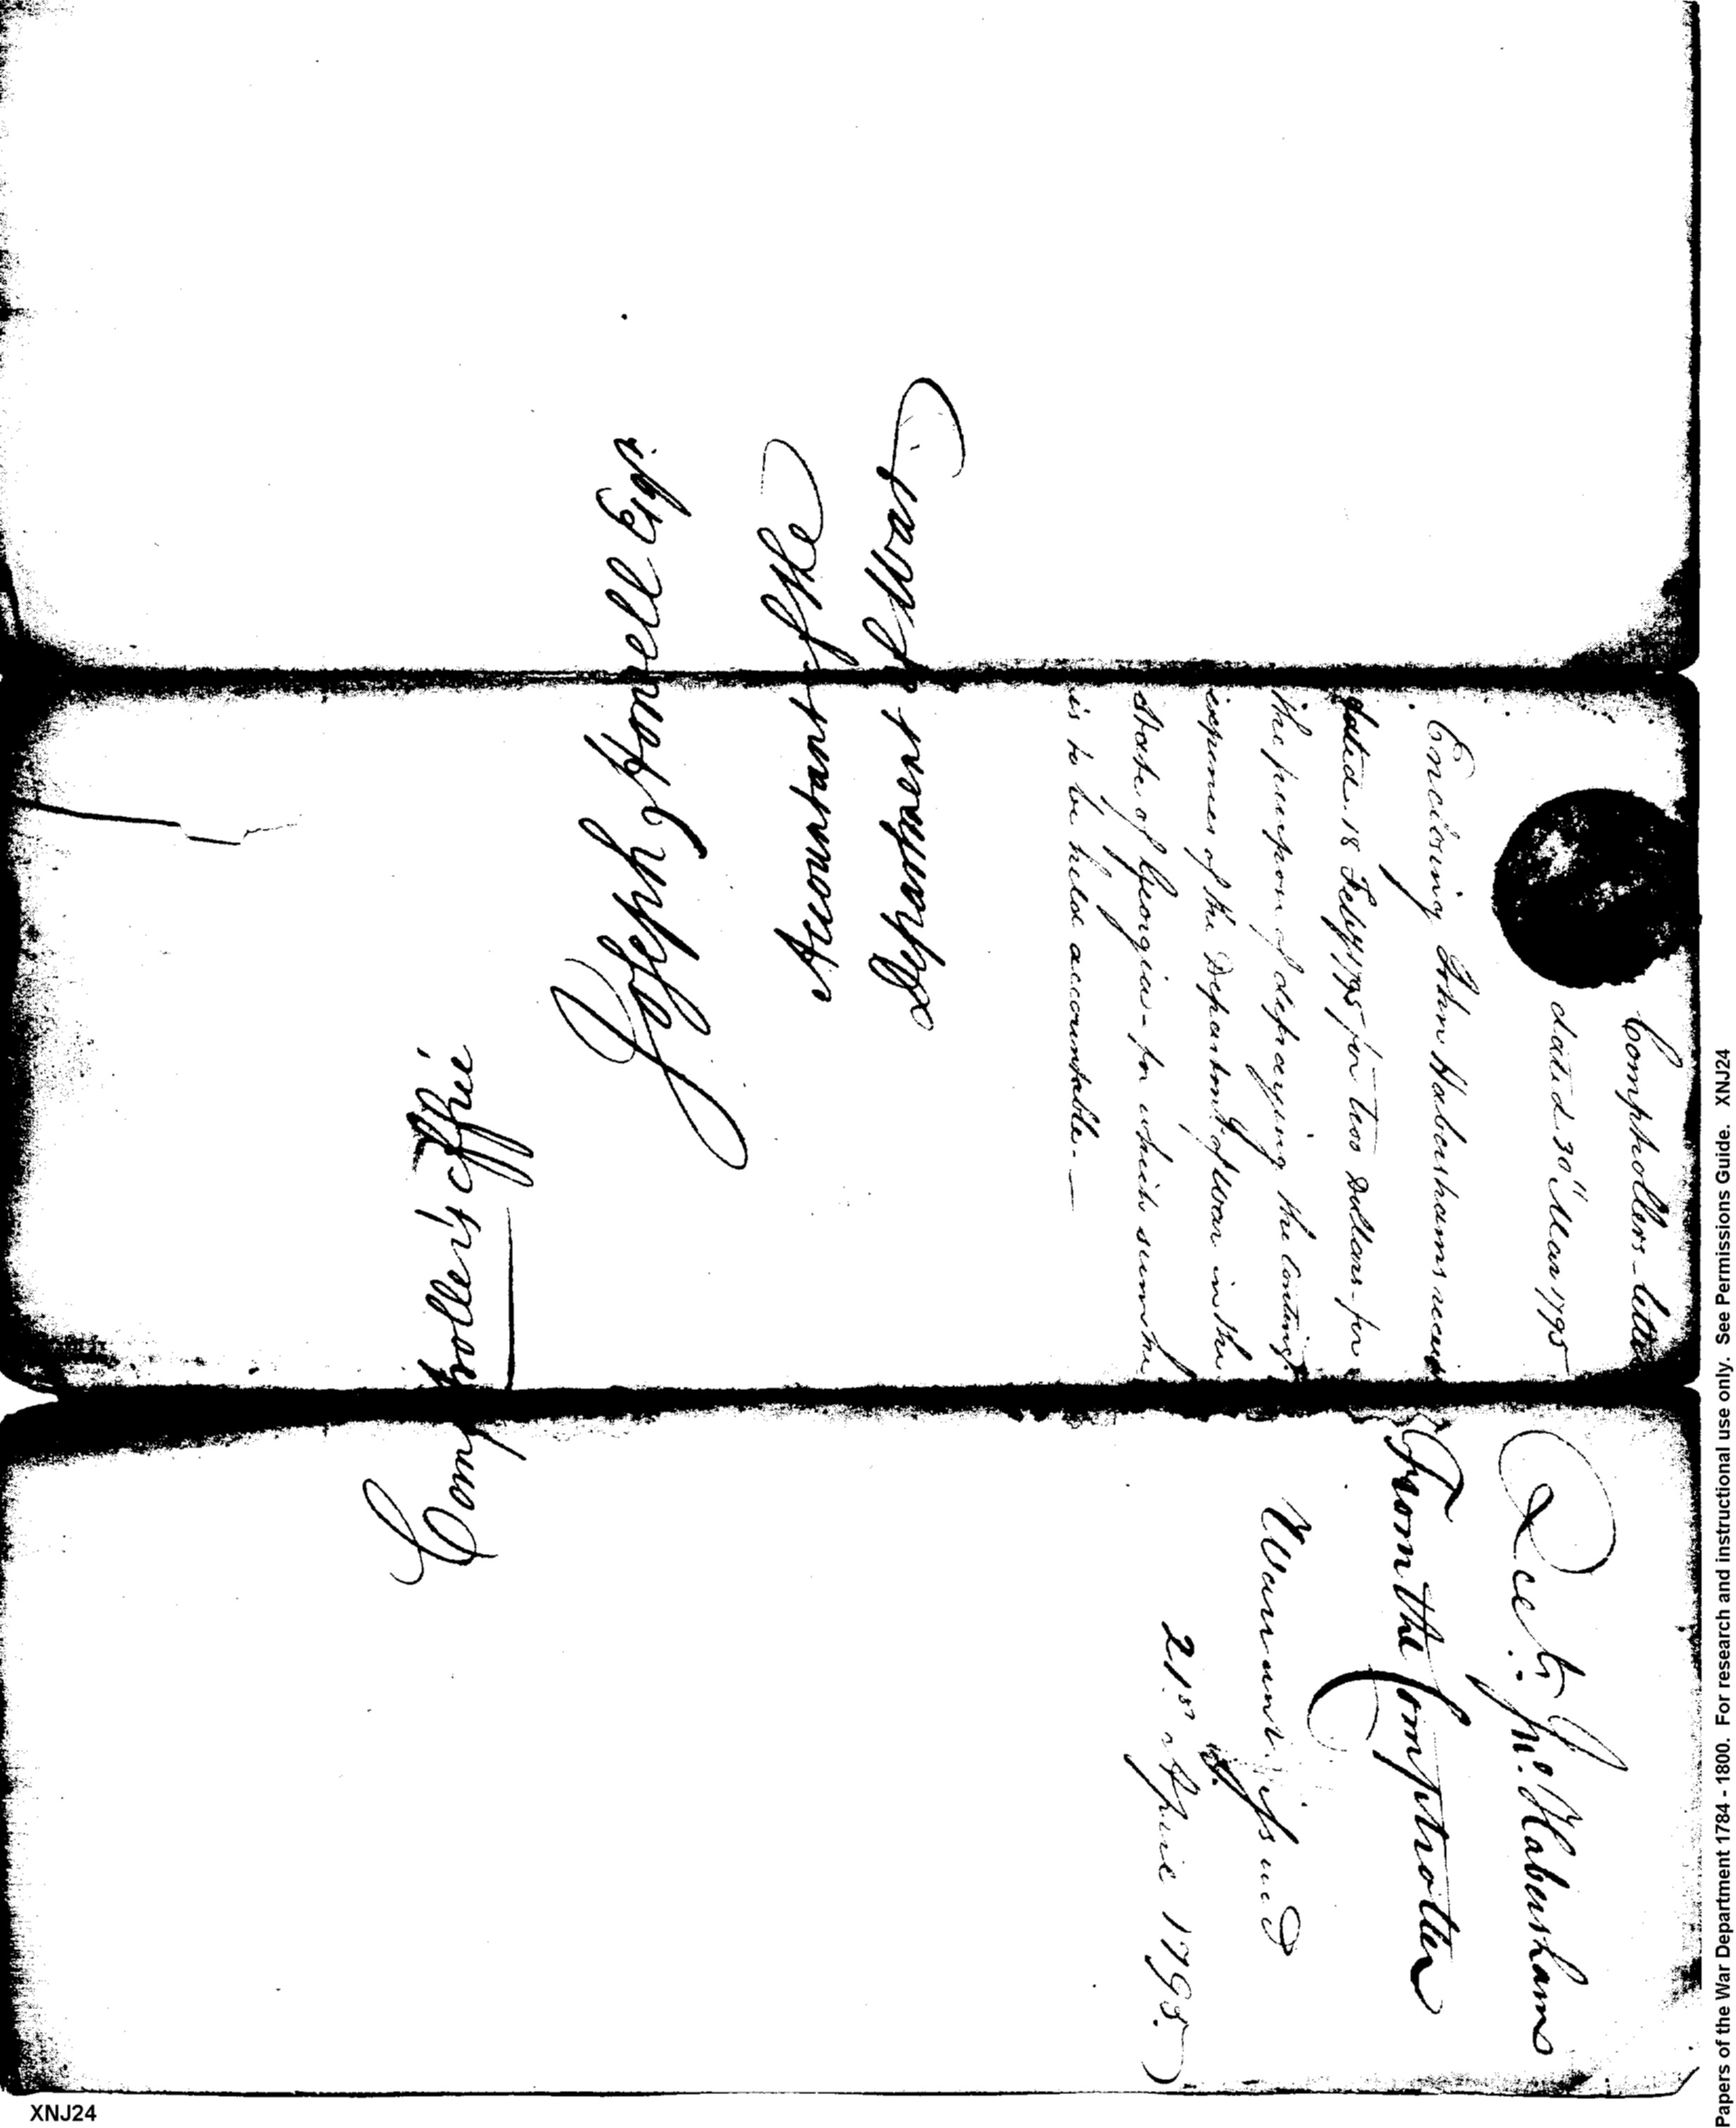 Joseph Howell Esqr.
Accountant of the
Department of War
Comptroller's Office
Comptrollers letter
dated 30th Mar 1795
Enclosing John Habershams receipt
dated 18 Feby 1795 for 1200 Dollars for
the purpose of defraying the conting.t
expenses of the Department of War in the
State of Georgia - for which sum he
is to be held accountable. —
Rect. Jno. Habersham
From the Comptroller
Warrant issued
21st April 1795.
XNJ24
Papers of the War Department 1784 - 1800. For research and instructional use only. See Permissions Guide. XNJ24